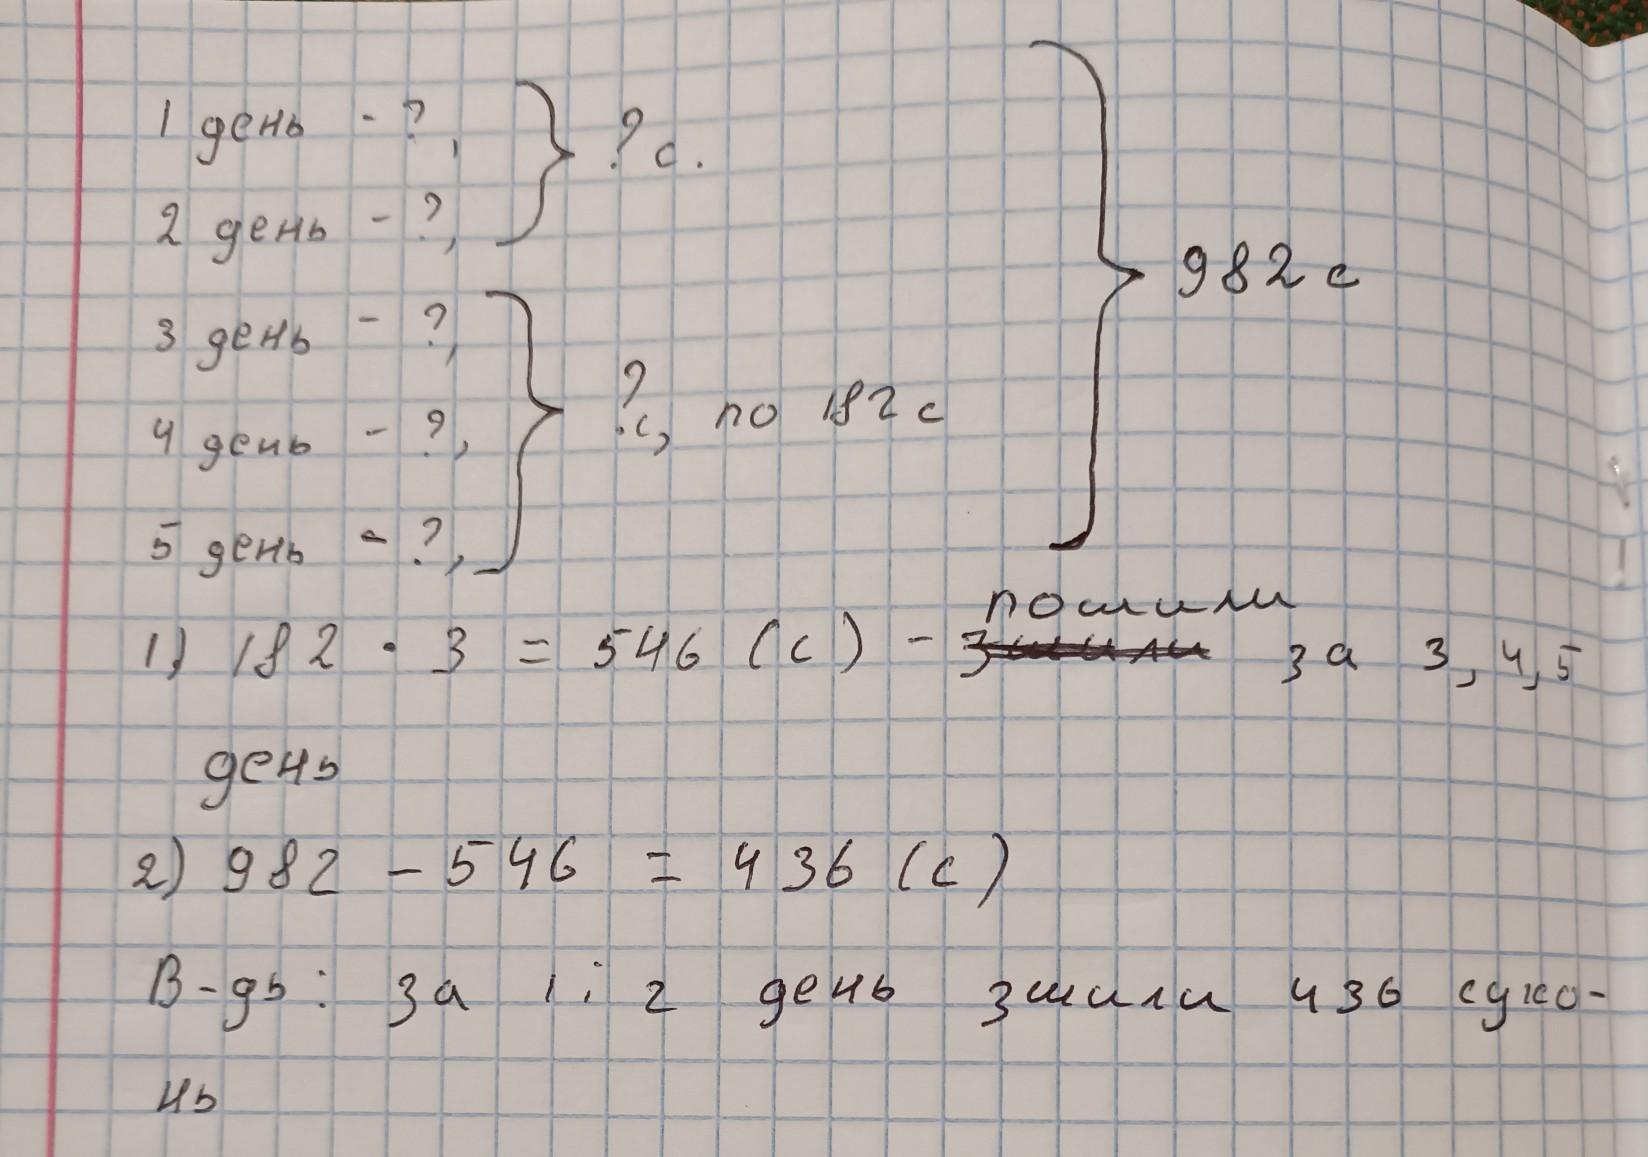 1 день - ?,
? с.
2 день - ?,
982 с
3 день - ?,
? с, по 182 с
4 день - ?,
5 день - ?,
пошили
1) 182 · 3 = 546 (с) - зшили за 3, 4, 5
день
2) 982 - 546 = 436 (с)
В-дь: за 1 і 2 день зшили 436 суко-
нь